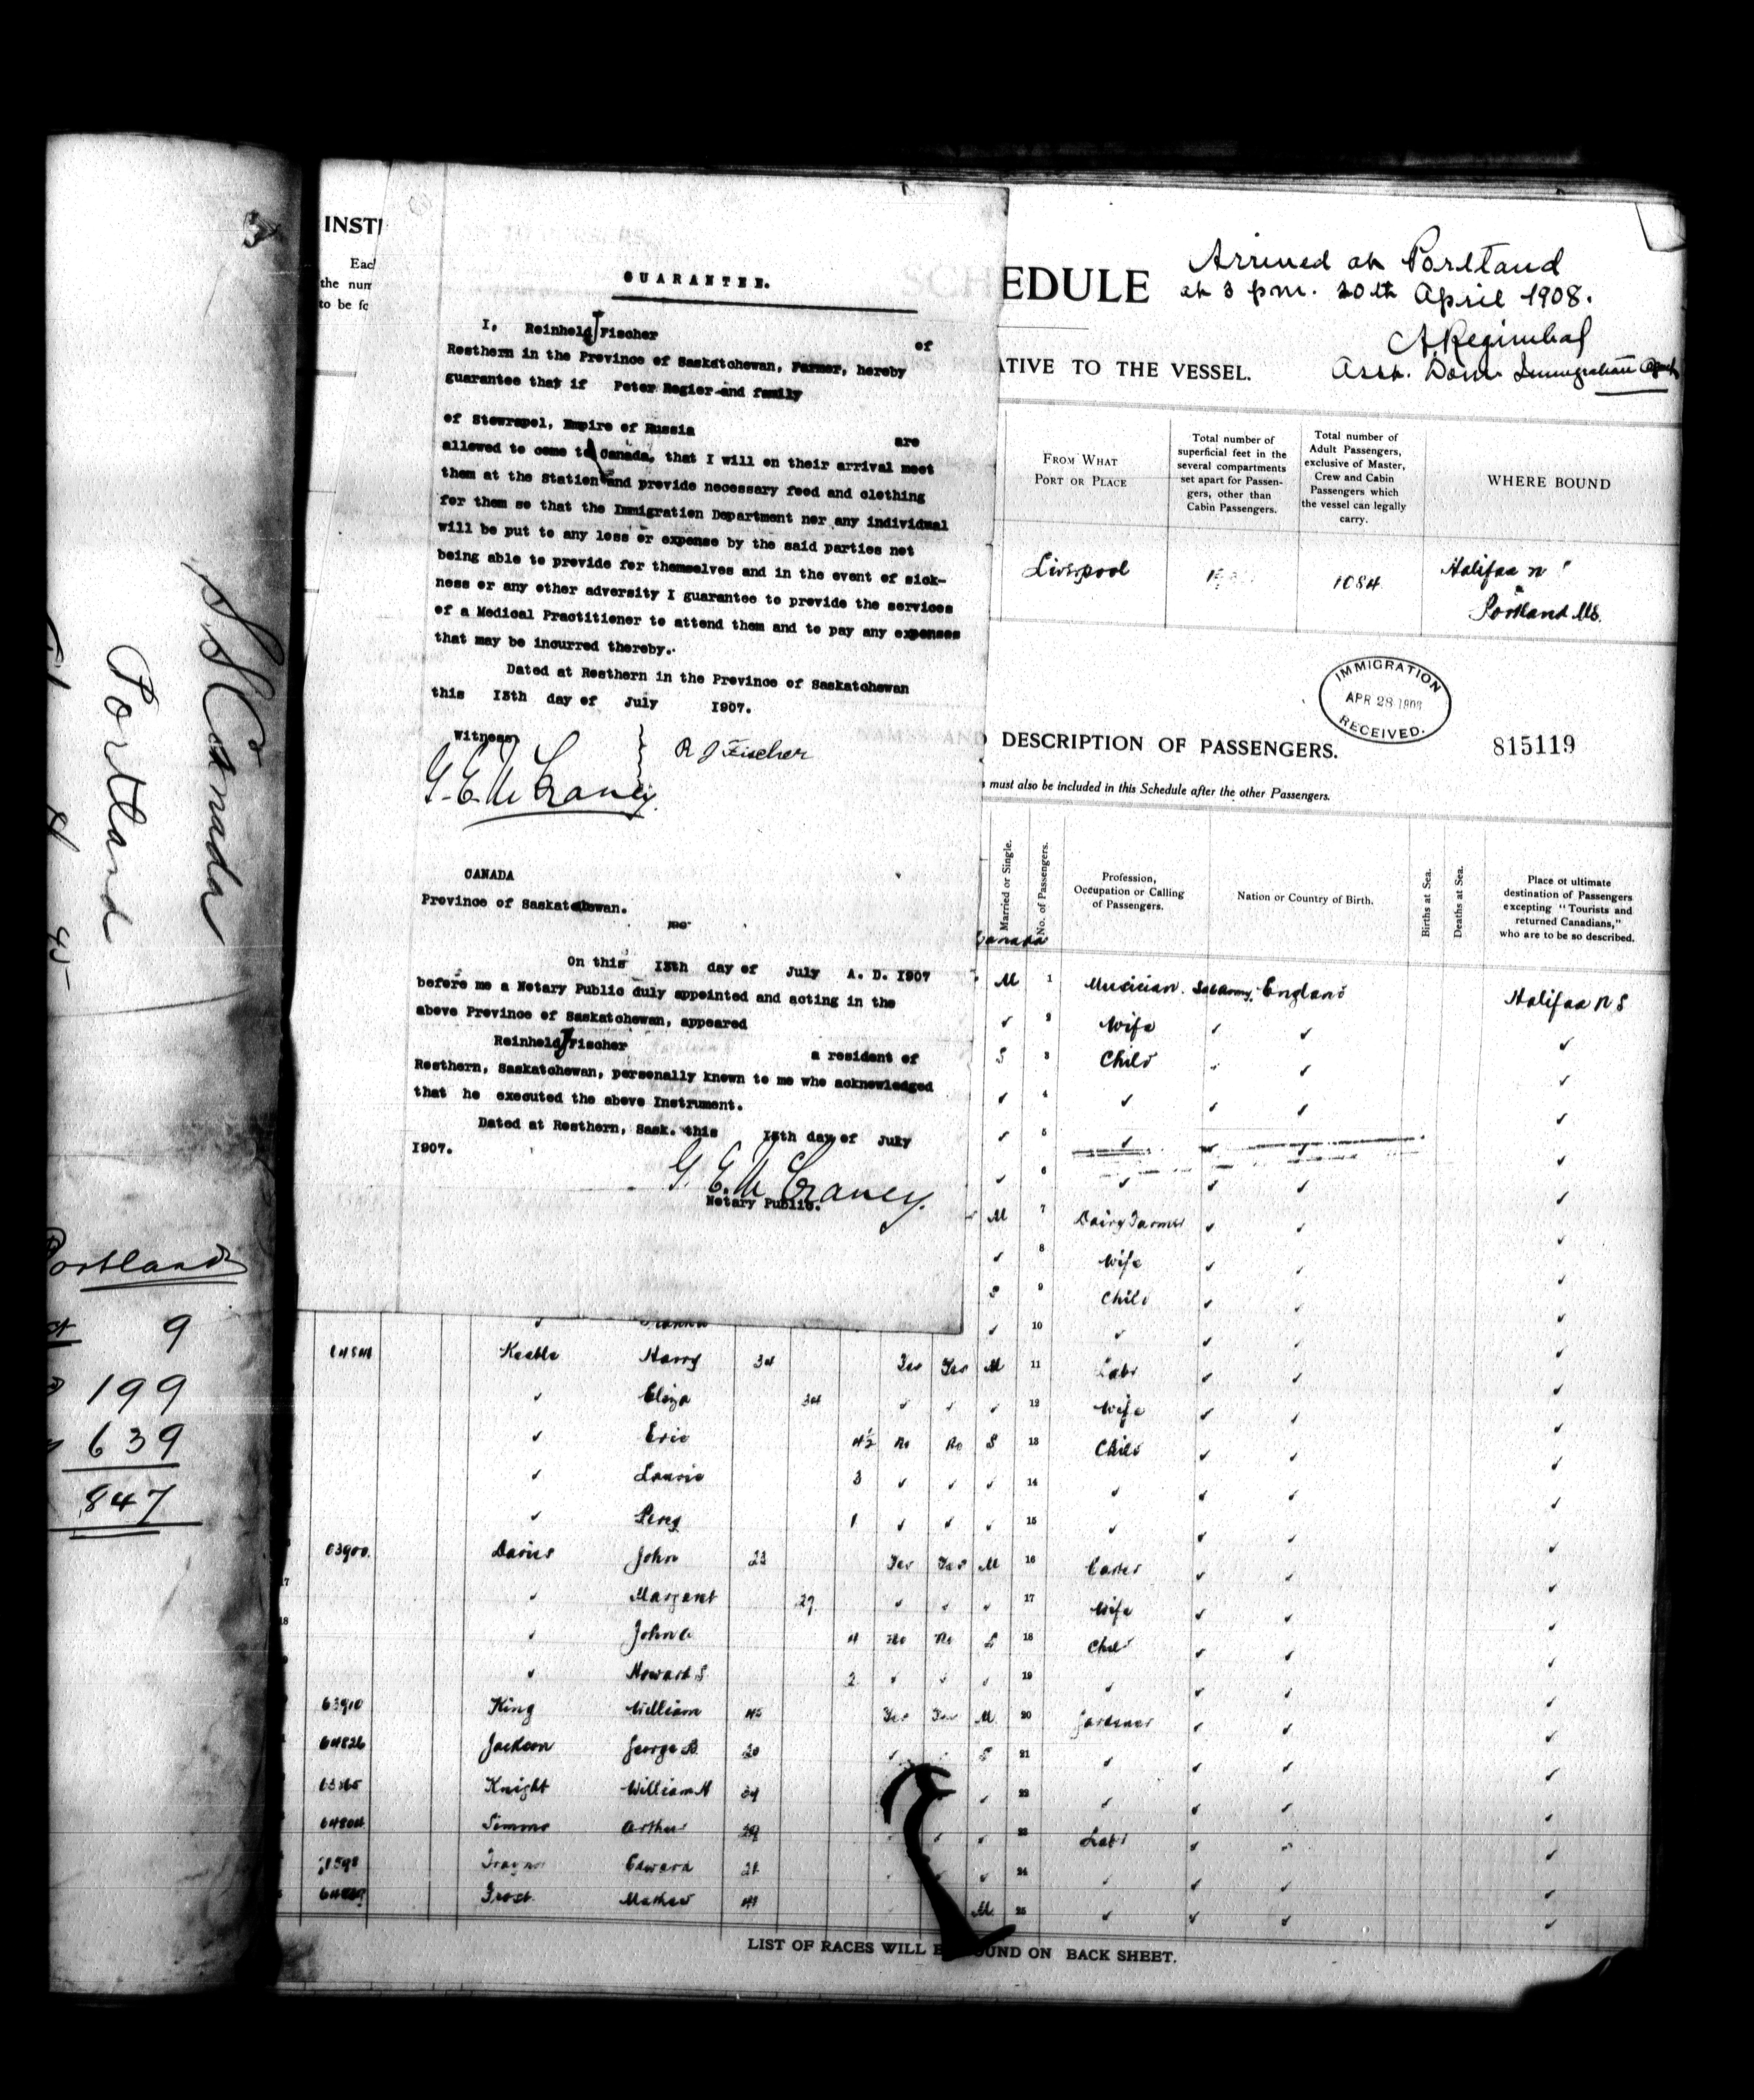 S.S. Canada
Portland
Portland
9
199
639
847
INST
Eac
the num
to be fo
GUARANTEE.
I, Reinhold J Fischer of
Rosthern in the Province of Saskatchewan, Farmer, hereby
guarantee that if Peter Regier and family
of Stowropol, Empire of Russia are
allowed to come to Canada, that I will on their arrival meet
them at the Station and provide necessary food and clothing
for them so that the Immigration Department nor any individual
will be put to any loss or expense by the said parties not
being able to provide for themselves and in the event of sick-
ness or any other adversity I guarantee to provide the services
of a Medical Practitioner to attend them and to pay any expenses
that may be incurred thereby.
Dated at Rosthern in the Province of Saskatchewan
this 15th day of July 1907.
Witness
G. E. McCraney
R J Fischer
CANADA
Province of Saskatchewan.
On this 15th day of July A. D. 1907
before me a Notary Public duly appointed and acting in the
above Province of Saskatchewan, appeared
Reinhold J Fischer a resident of
Rosthern, Saskatchewan, personally known to me who acknowledged
that he executed the above Instrument.
Dated at Rosthern, Sask. this 15th day of July
1907.
G. E. McCraney
Notary Public.
SCHEDULE
Arrived at Portland
at 3 pm. 20th April 1908.
Asst. Dom. Immigration Agent
ATIVE TO THE VESSEL.
FROM WHAT
PORT OR PLACE
Total number of
superficial feet in the
several compartments
set apart for Passen-
gers, other than
Cabin Passengers.
Total number of
Adult Passengers,
exclusive of Master,
Crew and Cabin
Passengers which
the vessel can legally
carry.
WHERE BOUND
Liverpool 1084 Halifax N
Portland Me.
IMMIGRATION
APR 28 1908
RECEIVED.
DESCRIPTION OF PASSENGERS. 815119
must also be included in this Schedule after the other Passengers.
Married or Single.
No. of Passengers.
Profession,
Occupation or Calling
of Passengers.
Nation or Country of Birth.
Births at Sea.
Deaths at Sea.
Place of ultimate
destination of Passengers
excepting "Tourists and
returned Canadians,"
who are to be so described.
Canada
M 1 Musician England Halifax N S
✓ 2 Wife ✓ ✓ ✓
S 3 Child ✓ ✓ ✓
✓ 4 ✓ ✓ ✓ ✓
✓ 5 ✓ ✓ ✓ ✓
✓ 6 ✓ ✓ ✓ ✓
M 7 Dairy Farmer ✓ ✓ ✓
✓ 8 Wife ✓ ✓ ✓
S 9 Child ✓ ✓ ✓
✓ 10 ✓ ✓ ✓ ✓
Keeble Harry 34 Yes Yes M 11 Labr ✓ ✓ ✓
✓ Eliza 34 ✓ ✓ ✓ 12 Wife ✓ ✓ ✓
✓ Eric 4½ No No S 13 Child ✓ ✓ ✓
✓ Laurie 3 ✓ ✓ ✓ 14 ✓ ✓ ✓ ✓
✓ Percy 1 ✓ ✓ ✓ 15 ✓ ✓ ✓ ✓
63900 Davies John 23 Yes Yes M 16 Carter ✓ ✓ ✓
17 ✓ Margaret 27 ✓ ✓ ✓ 17 Wife ✓ ✓ ✓
18 ✓ John A 4 No No S 18 Child ✓ ✓ ✓
✓ Howard S 2 ✓ ✓ ✓ 19 ✓ ✓ ✓ ✓
63910 King William 45 Yes Yes M 20 Gardener ✓ ✓ ✓
64826 Jackson George B. 20 ✓ S 21 ✓ ✓ ✓ ✓
Knight William H ✓ 22 ✓ ✓ ✓ ✓
64804 Simons Arthur 29 ✓ ✓ 23 Labr ✓ ✓ ✓
Edward 21 ✓ ✓ 24 ✓ ✓ ✓ ✓
Frost Mathew 41 M 25 ✓ ✓ ✓ ✓
LIST OF RACES WILL BE FOUND ON BACK SHEET.